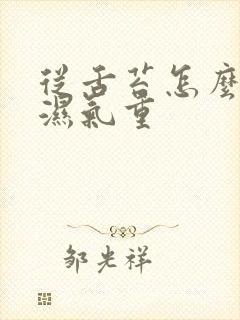 從舌苔怎麼
濕氣重
邹光祥